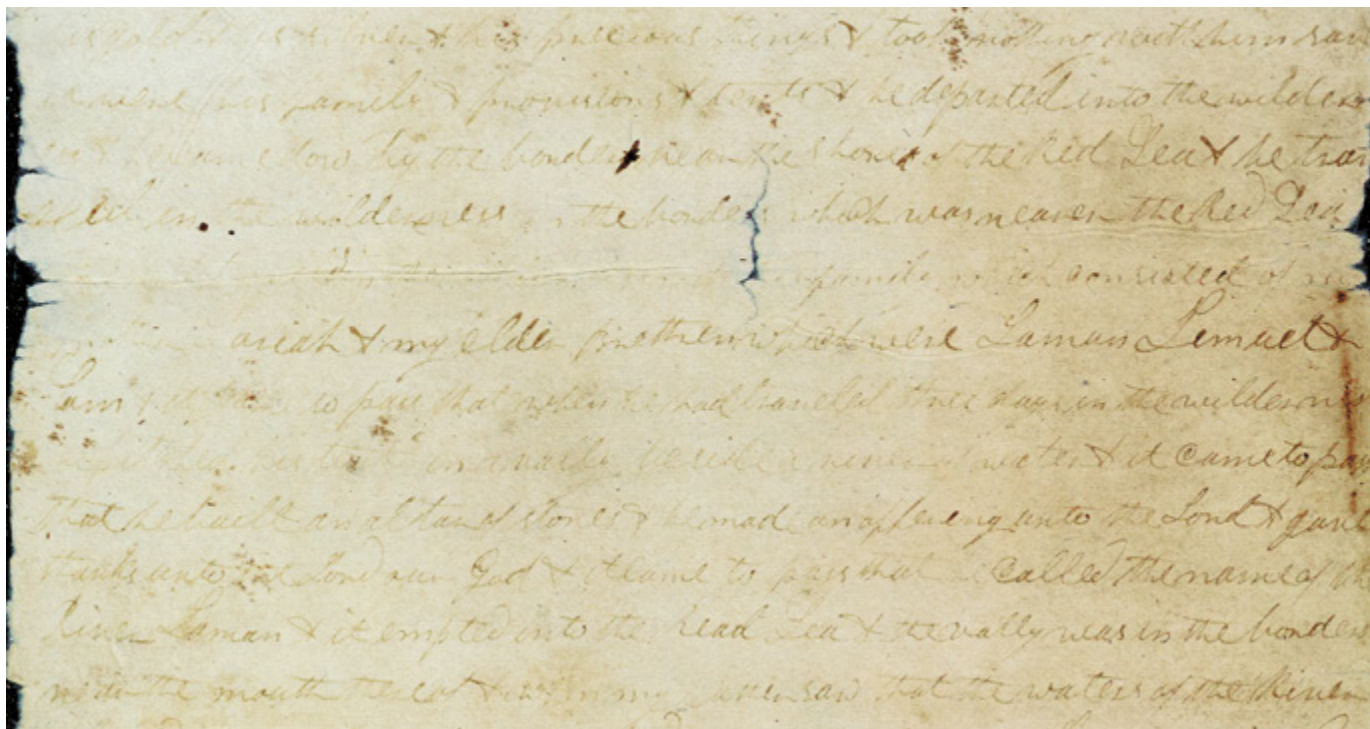 his gold & his silver & his precious things & took nothing with him save
it were his family & provisions & tents & he departed into the wilder
& he came down by the borders near the shore of the Red Sea & he trav
eled in the wilderness in the borders which was nearer the Red Sea
family which consisted of
ariah & my elder brethren which were Laman Lemuel &
Sam to pass that when he had traveled three days in the wilderness
he pitched his tent in a vally beside a river of water & it came to pass
that he built an altar of stones & he made an offering unto the Lord & gave
thanks unto the Lord our God & it came to pass that he called the name of the
River Laman & it empted into the head Sea & the vally was in the borders
the mouth thereof & when my father saw that the waters of the River